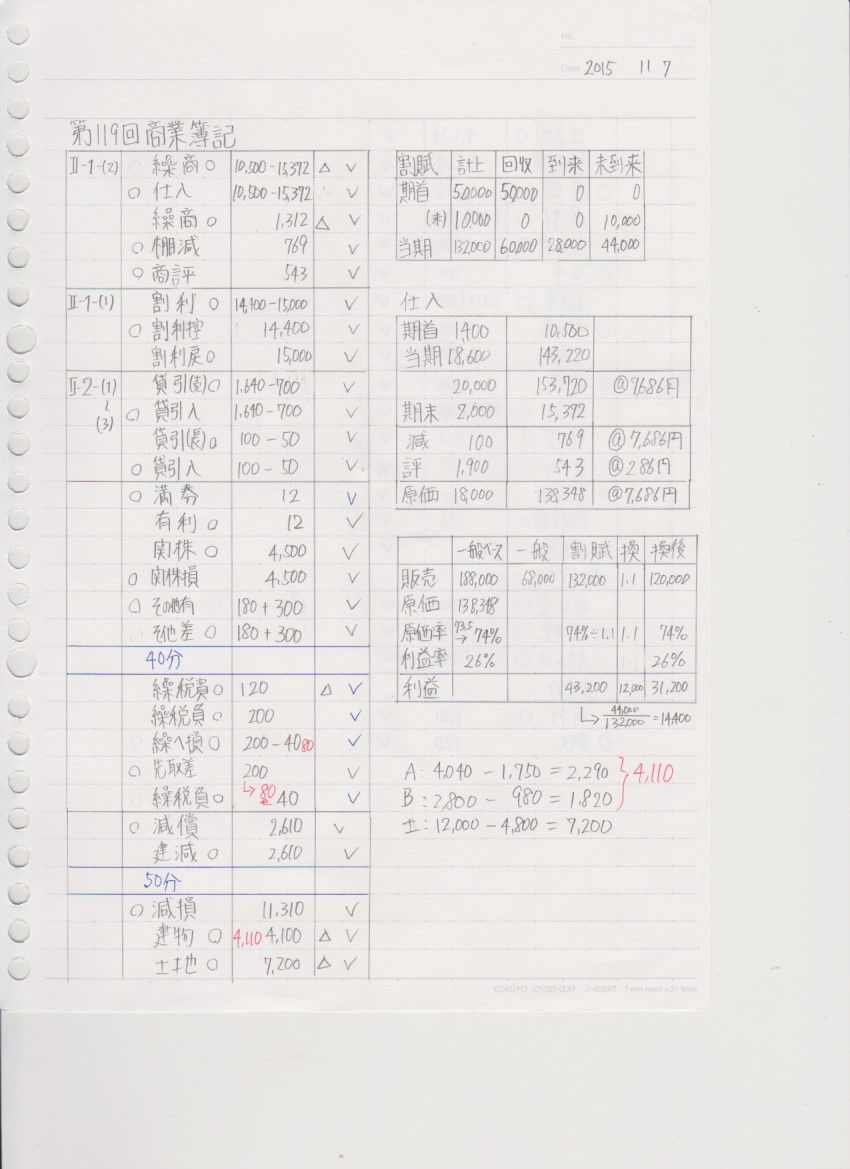 No.
Date 2015 11 7
第119回商業簿記
II-1-(2) ○ 繰商○ 10,500-15,372 △ ✓
○ 仕入 10,500-15,372 ✓
繰商○ 1,312 △ ✓
○棚減 769 ✓
○商評 543 ✓
II-1-(1) 割利○ 14,400-15,000 ✓
○割利控 14,400 ✓
割利戻○ 15,000 ✓
II-2-(1) 貸引(売)○ 1,640-700 ✓
〜 ○貸引入 1,640-700 ✓
(3) 貸引(長)○ 100-50 ✓
○貸引入 100-50 ✓
○満券 12 ✓
有利○ 12 ✓
関株○ 4,500 ✓
○関株損 4,500 ✓
○その他有 180+300 ✓
そ他差○ 180+300 ✓
40分
繰税資○ 120 △ ✓
繰税負○ 200 ✓
繰ヘ損○ 200-40 80 ✓
○先取差 200 ✓
繰税負○ ↳80 40 ✓
○減償 2,610 ✓
建減○ 2,610 ✓
50分
○減損 11,310 ✓
建物○ 4,110 4,100 △ ✓
土地○ 7,200 △ ✓
割賦 計上 回収 到来 未到来
期首 50,000 50,000 0 0
(未) 10,000 0 0 10,000
当期 132,000 60,000 28,000 44,000
仕入
期首 1,400 10,500
当期 18,600 143,220
20,000 153,720 @7,686円
期末 2,000 15,372
減 100 769 @7,686円
評 1,900 543 @286円
原価 18,000 138,348 @7,686円
一般ベース 一般 割賦 換 換後
販売 188,000 68,000 132,000 1.1 120,000
原価 138,348
原価率 73.5→74% 74%÷1.1 1.1 74%
利益率 26% 1.1 26%
利益 43,200 12,000 31,200
↳ 44,000/132,000 =14,400
A:4,040-1,750=2,290 } 4,110
B:2,800-980=1,820
土:12,000-4,800=7,200
KOKUYO LOOSE-LEAF ノ-836AT 7mm ruled×31 lines